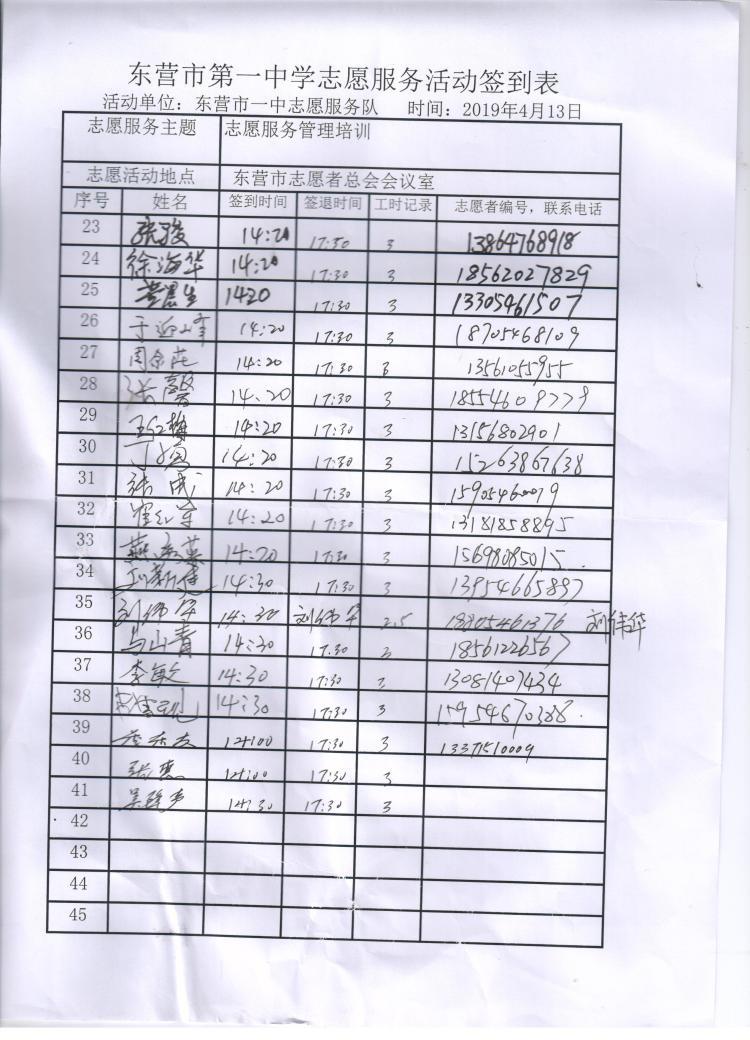 东营市第一中学志愿服务活动签到表
活动单位：东营市一中志愿服务队 时间：2019年4月13日
志愿服务主题 志愿服务管理培训
志愿活动地点 东营市志愿者总会会议室
序号 姓名 签到时间 签退时间 工时记录 志愿者编号，联系电话
23 张骏 14:20 17:30 3 13864768918
24 徐海华 14:20 17:30 3 18562027829
25 1420 17:30 3 13305461507
26 于迎峰 14:20 17:30 3 18705468109
27 14:20 17:30 3 13561055955
28 张馨 14:20 17:30 3 18554609779
29 王红梅 14:20 17:30 3 13156802901
30 14:20 17:30 3 15263867638
31 张成 14:20 17:30 3 15905460019
32 崔红军 14:20 17:30 3 13181858895
33 14:20 17:30 3 15698085015
34 14:30 17:30 3 13954665897
35 刘伟华 14:30 刘伟华 2.5 18305461376 刘伟华
36 马山青 14:30 17:30 3 18561226567
37 李敏 14:30 17:30 3 13081407434
38 14:30 17:30 3 15954670388
39 14:00 17:30 3 13371510009
40 张燕 14:00 17:30 3
41 14:30 17:30 3
42
43
44
45